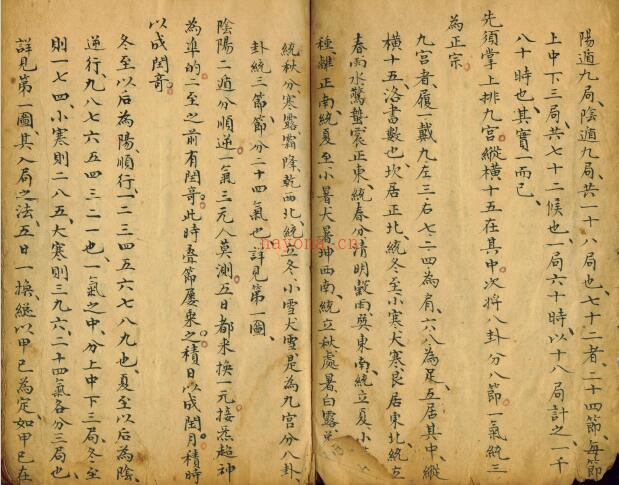 陽遁九局、陰遁九局、共一十八局也、七十二者、二十四節、每節
上中下三局、共七十二候也、一局六十時、以十八局計之、一千
八十時也、其實一而已、
先須掌上排九宮、縱橫十五在其中、次將八卦分八節、一氣統三
為正宗
九宮者、履一戴九、左三右七、二四為肩、六八為足、五居其中、縱
橫十五、洛書數也、坎居正北、統冬至小寒大寒、艮居東北、統立
春雨水驚蟄、震正東、統春分清明穀雨、巽東南、統立夏小
種、離正南、統夏至小暑大暑、坤西南、統立秋處暑白露、
統秋分寒露霜降、乾西北、統立冬小雪大雪、是為九宮分八卦、
卦統三節、節分二十四氣也、詳見第一圖、
陰陽二遁分順逆、一氣三元人莫測、五日都來換一元、接炁超神
為準的、二至之前有閏奇、此時疊節屢乘之、積日以成閏月、積時
以成閏奇、
冬至以后為陽順行、一二三四五六七八九也、夏至以后為陰
逆行、九八七六五四三二一也、一氣之中、分上中下三局、冬至
則一七四、小寒則二八五、大寒則三九六、二十四氣各分三局也、
詳見第一圖、其入局之法、五日一換、總以甲己為定、如甲己在
nayona.cn